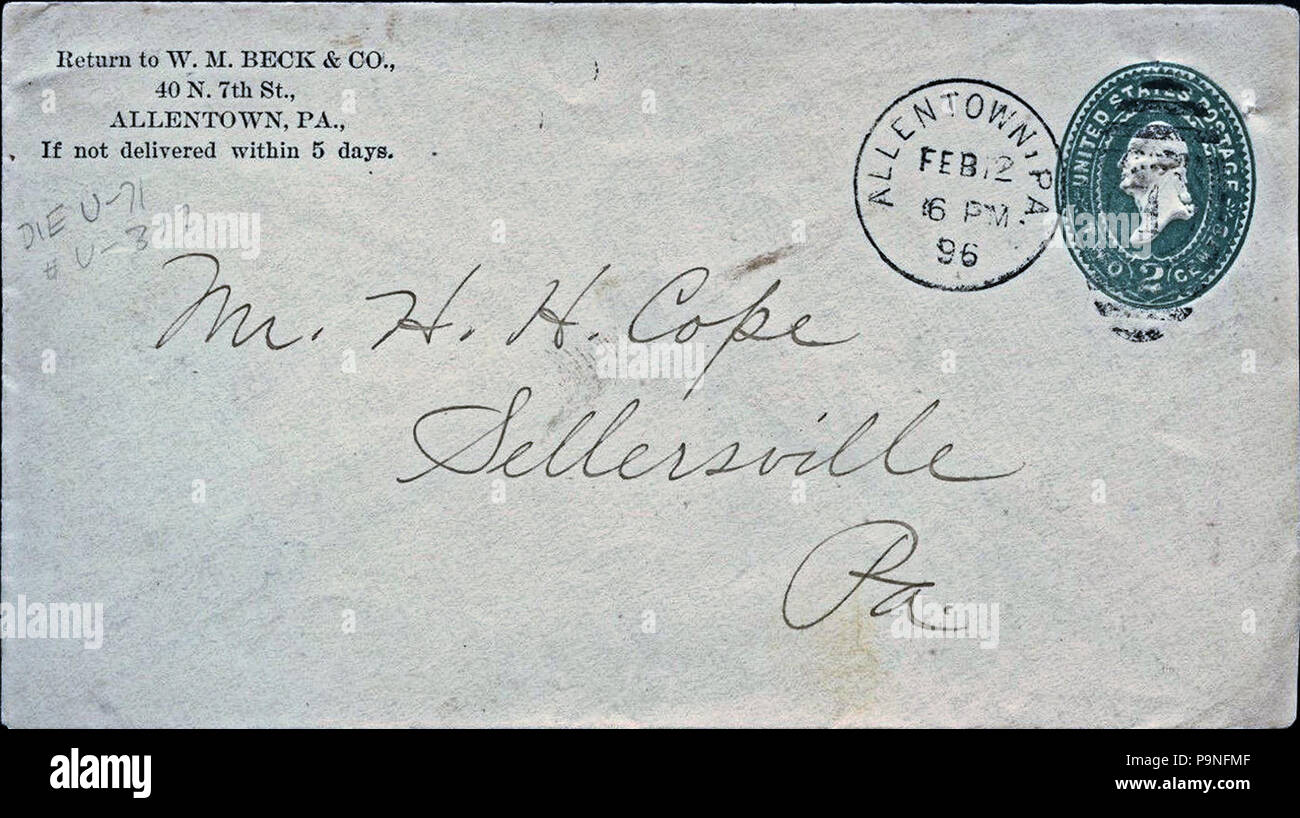 Return to W. M. BECK & CO.,
40 N. 7th St.,
ALLENTOWN, PA.,
If not delivered within 5 days.
DIE U-71
# U-3
ALLENTOWN, PA.
FEB 12
6 PM
96
UNITED STATES POSTAGE
TWO 2 CENTS
1
Mr. H. H. Cope
Sellersville
Pa.
alamy
alamy
Image ID: P9NFMF
www.alamy.com